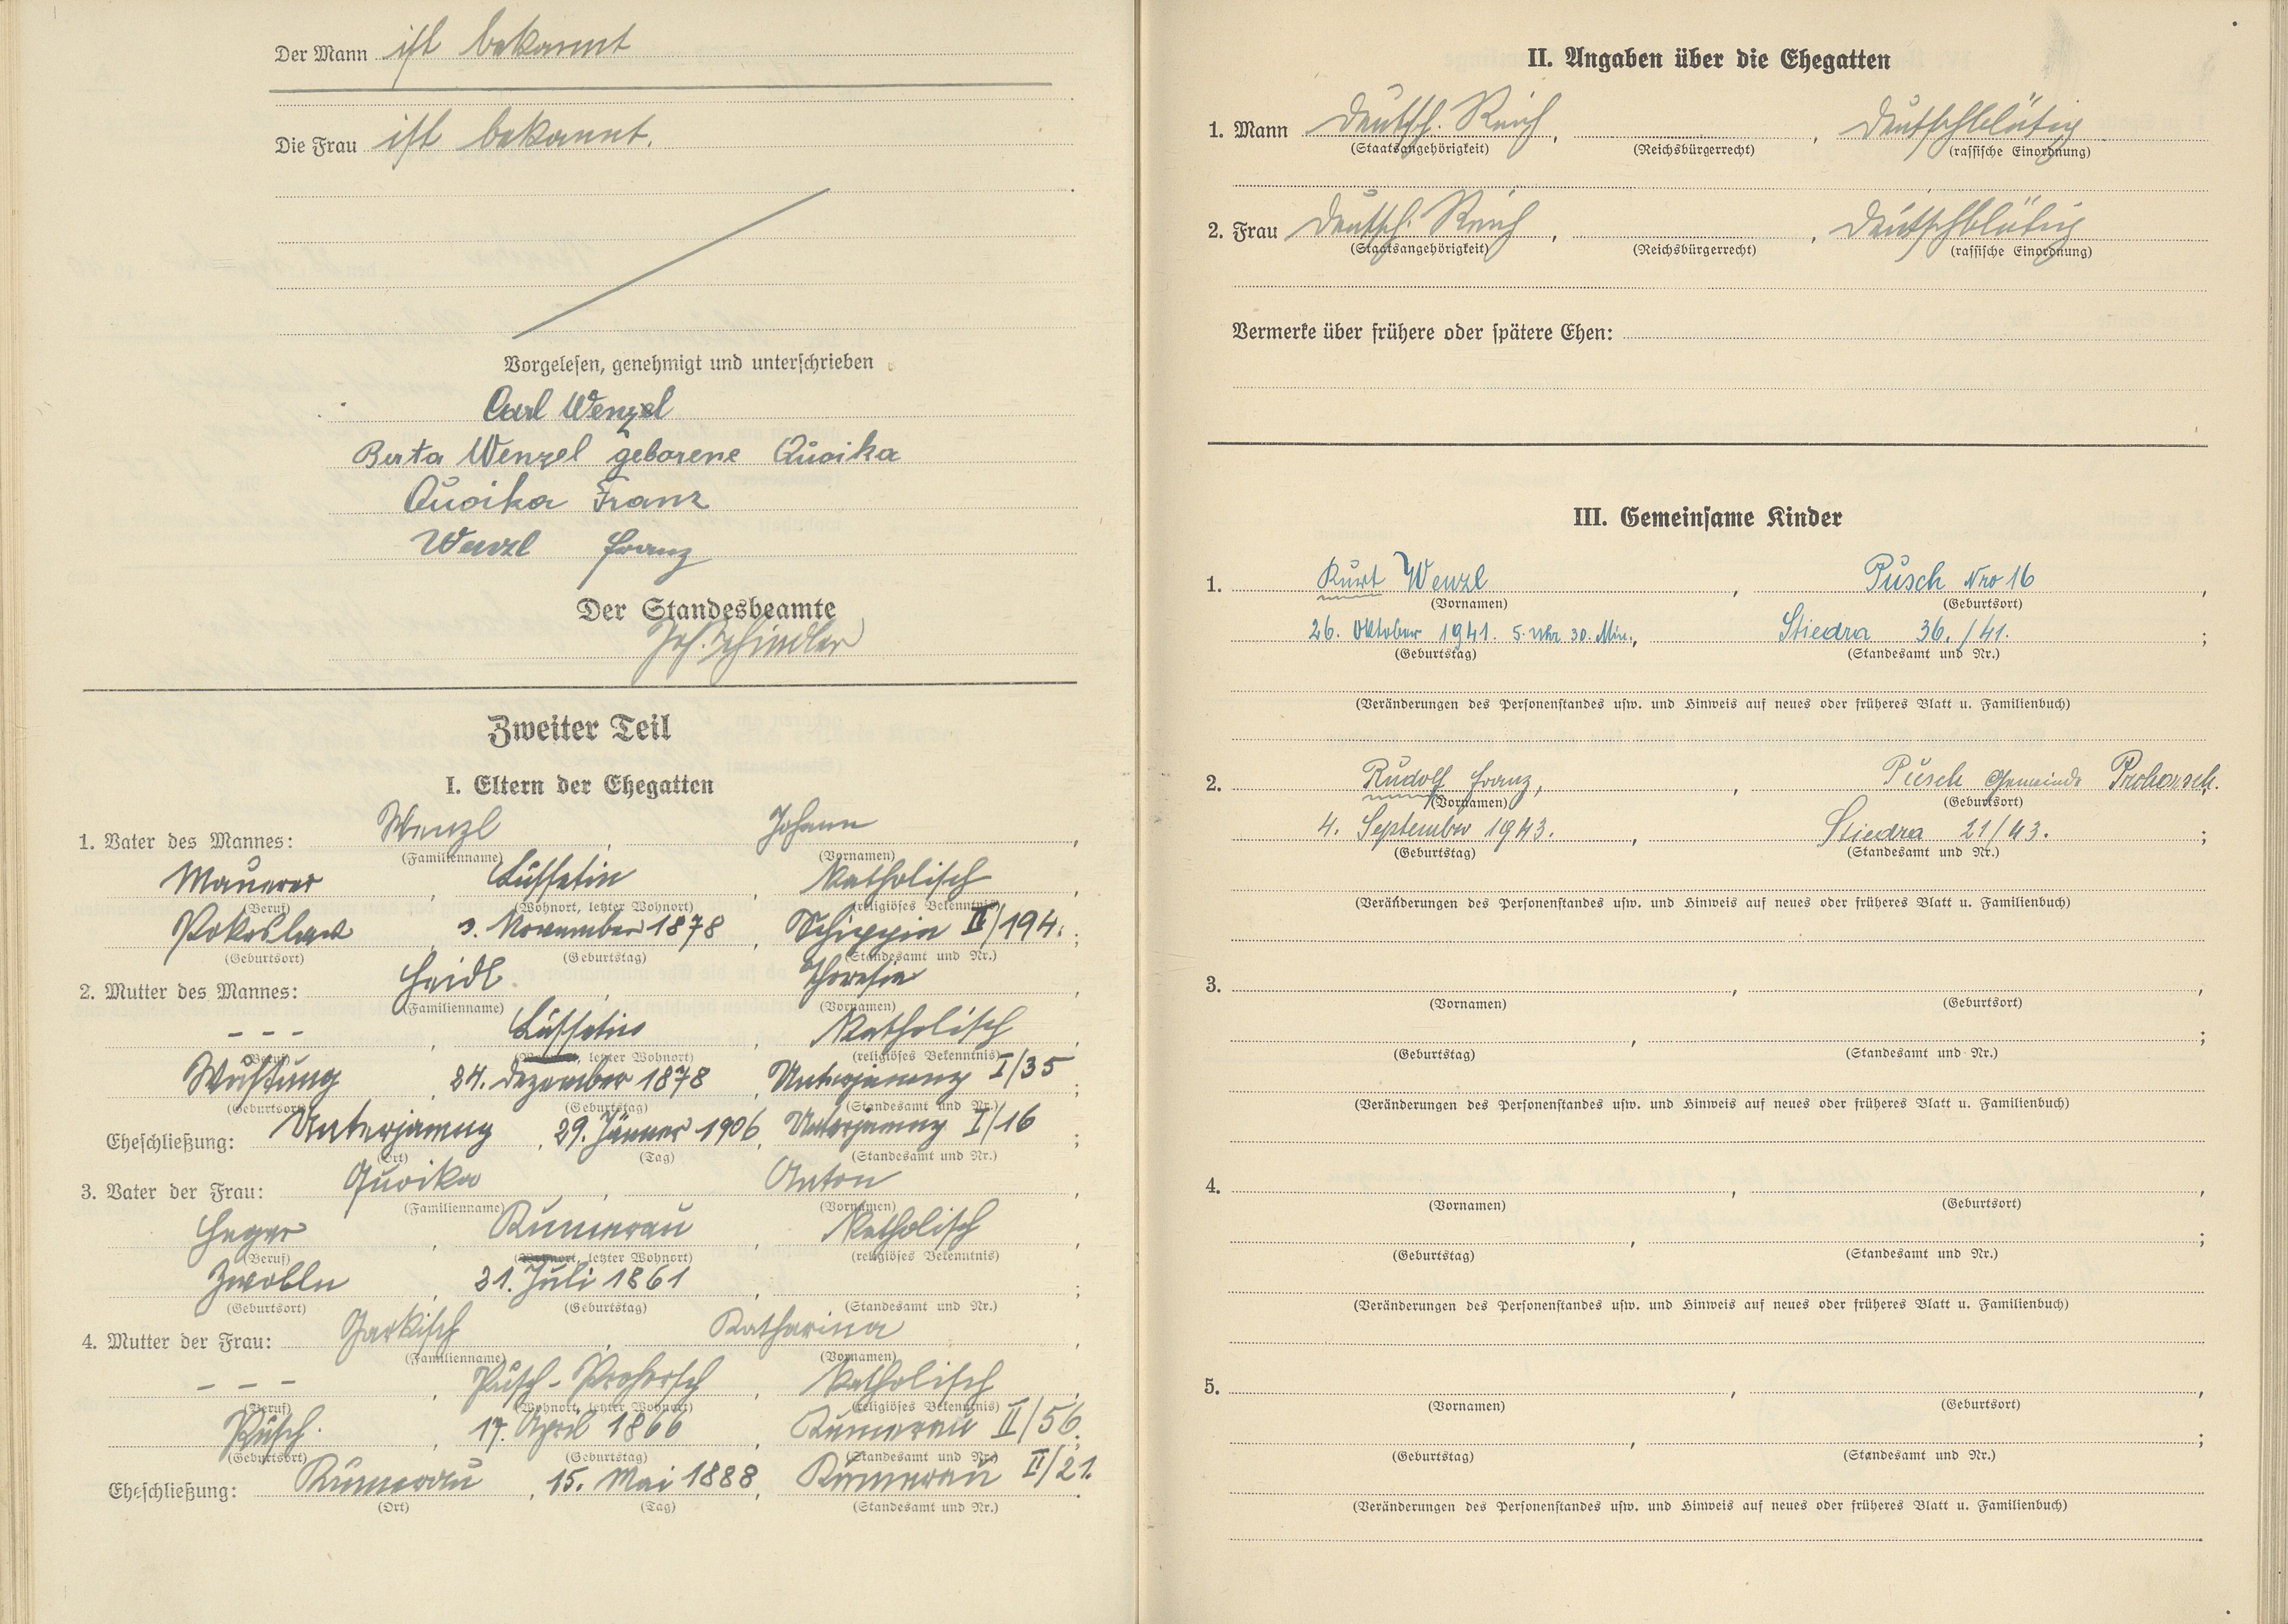 Der Mann ist bekannt
Die Frau ist bekannt.
Vorgelesen, genehmigt und unterschrieben
Carl Wenzel
Berta Wenzel geborene Quoika
Quoika Franz
Wenzl Franz
Der Standesbeamte
Jos. Schindler
Zweiter Teil
I. Eltern der Ehegatten
1. Vater des Mannes: Wenzl Johann,
(Familienname) (Vornamen)
Maurer, Lussetin, katholisch,
(Beruf) (Wohnort, letzter Wohnort) (religiöses Bekenntnis)
Pokeslaw, 3. November 1878, Schippin II/194.;
(Geburtsort) (Geburtstag) (Standesamt und Nr.)
2. Mutter des Mannes: Heidl, Theresia,
(Familienname) (Vornamen)
- - -, Lussetin, katholisch,
(Beruf) (Wohnort, letzter Wohnort) (religiöses Bekenntnis)
Wüstung, 24. Dezember 1878, Unterjamny I/35;
(Geburtsort) (Geburtstag) (Standesamt und Nr.)
Eheschließung: Unterjamny, 29. Jänner 1906, Unterjamny I/16;
(Ort) (Tag) (Standesamt und Nr.)
3. Vater der Frau: Quoika, Anton,
(Familienname) (Vornamen)
Heger, Kumerau, katholisch,
(Beruf) (Wohnort, letzter Wohnort) (religiöses Bekenntnis)
Zwolln, 31. Juli 1861, ;
(Geburtsort) (Geburtstag) (Standesamt und Nr.)
4. Mutter der Frau: Jarkisch, Katharina,
(Familienname) (Vornamen)
- - -, Pusch-Prohorsch, katholisch,
(Beruf) (Wohnort, letzter Wohnort) (religiöses Bekenntnis)
Pusch., 17. April 1866, Kumerau II/56;
(Geburtsort) (Geburtstag) (Standesamt und Nr.)
Eheschließung: Kumerau, 15. Mai 1888, Kumerau II/21.
(Ort) (Tag) (Standesamt und Nr.)
II. Angaben über die Ehegatten
1. Mann Deutsch. Reich, , Deutschblütig
(Staatsangehörigkeit) (Reichsbürgerrecht) (rassische Einordnung)
2. Frau Deutsch. Reich, , Deutschblütig
(Staatsangehörigkeit) (Reichsbürgerrecht) (rassische Einordnung)
Vermerke über frühere oder spätere Ehen:
III. Gemeinsame Kinder
1. Kurt Wenzl, Pusch Nro 16,
(Vornamen) (Geburtsort)
26. Oktober 1941. 5. Uhr 30. Min., Stiedra 36./41.;
(Geburtstag) (Standesamt und Nr.)
(Veränderungen des Personenstandes usw. und Hinweis auf neues oder früheres Blatt u. Familienbuch)
2. Rudolf Franz, , Pusch Gemeinde Prohorsch.
(Vornamen) (Geburtsort)
4. September 1943., Stiedra 21/43.;
(Geburtstag) (Standesamt und Nr.)
(Veränderungen des Personenstandes usw. und Hinweis auf neues oder früheres Blatt u. Familienbuch)
3. , ,
(Vornamen) (Geburtsort)
, ;
(Geburtstag) (Standesamt und Nr.)
(Veränderungen des Personenstandes usw. und Hinweis auf neues oder früheres Blatt u. Familienbuch)
4. , ,
(Vornamen) (Geburtsort)
, ;
(Geburtstag) (Standesamt und Nr.)
(Veränderungen des Personenstandes usw. und Hinweis auf neues oder früheres Blatt u. Familienbuch)
5. , ,
(Vornamen) (Geburtsort)
, ;
(Geburtstag) (Standesamt und Nr.)
(Veränderungen des Personenstandes usw. und Hinweis auf neues oder früheres Blatt u. Familienbuch)